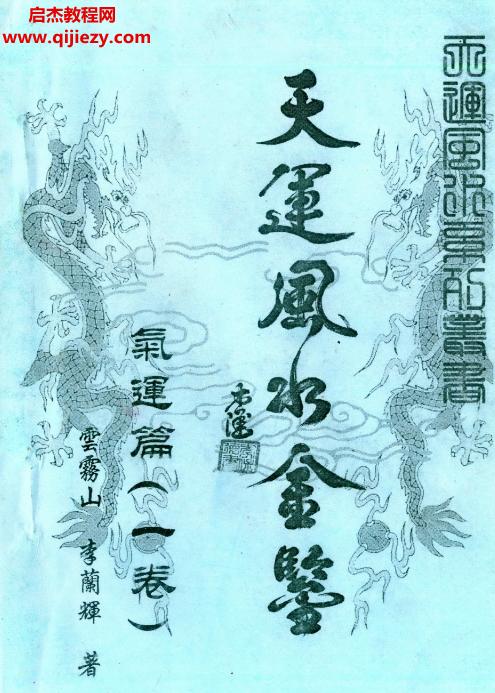 启杰教程网
www.qijiezy.com
天運風水叢書
天運風水金鑒
氣運篇(一卷)
雲霧山 李蘭輝 著